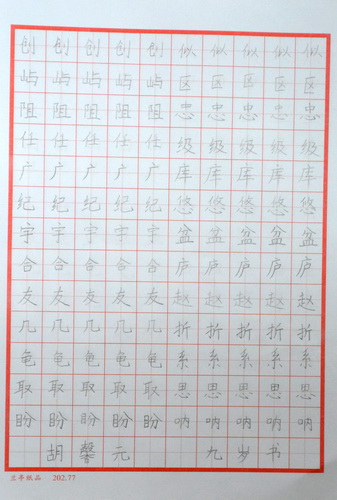 创创创创创似似似似似
屿屿屿屿屿区区区区区
阻阻阻阻阻忠忠忠忠忠
任任任任任级级级级级
广广广广广库库库库库
纪纪纪纪纪悠悠悠悠悠
宇宇宇宇宇盆盆盆盆盆
合合合合合庐庐庐庐庐
友友友友友赵赵赵赵赵
几几几几几折折折折折
龟龟龟龟龟系系系系系
取取取取取思思思思思
盼盼盼盼盼呐呐呐呐呐
胡馨元 九岁书
兰亭纸品 202.77